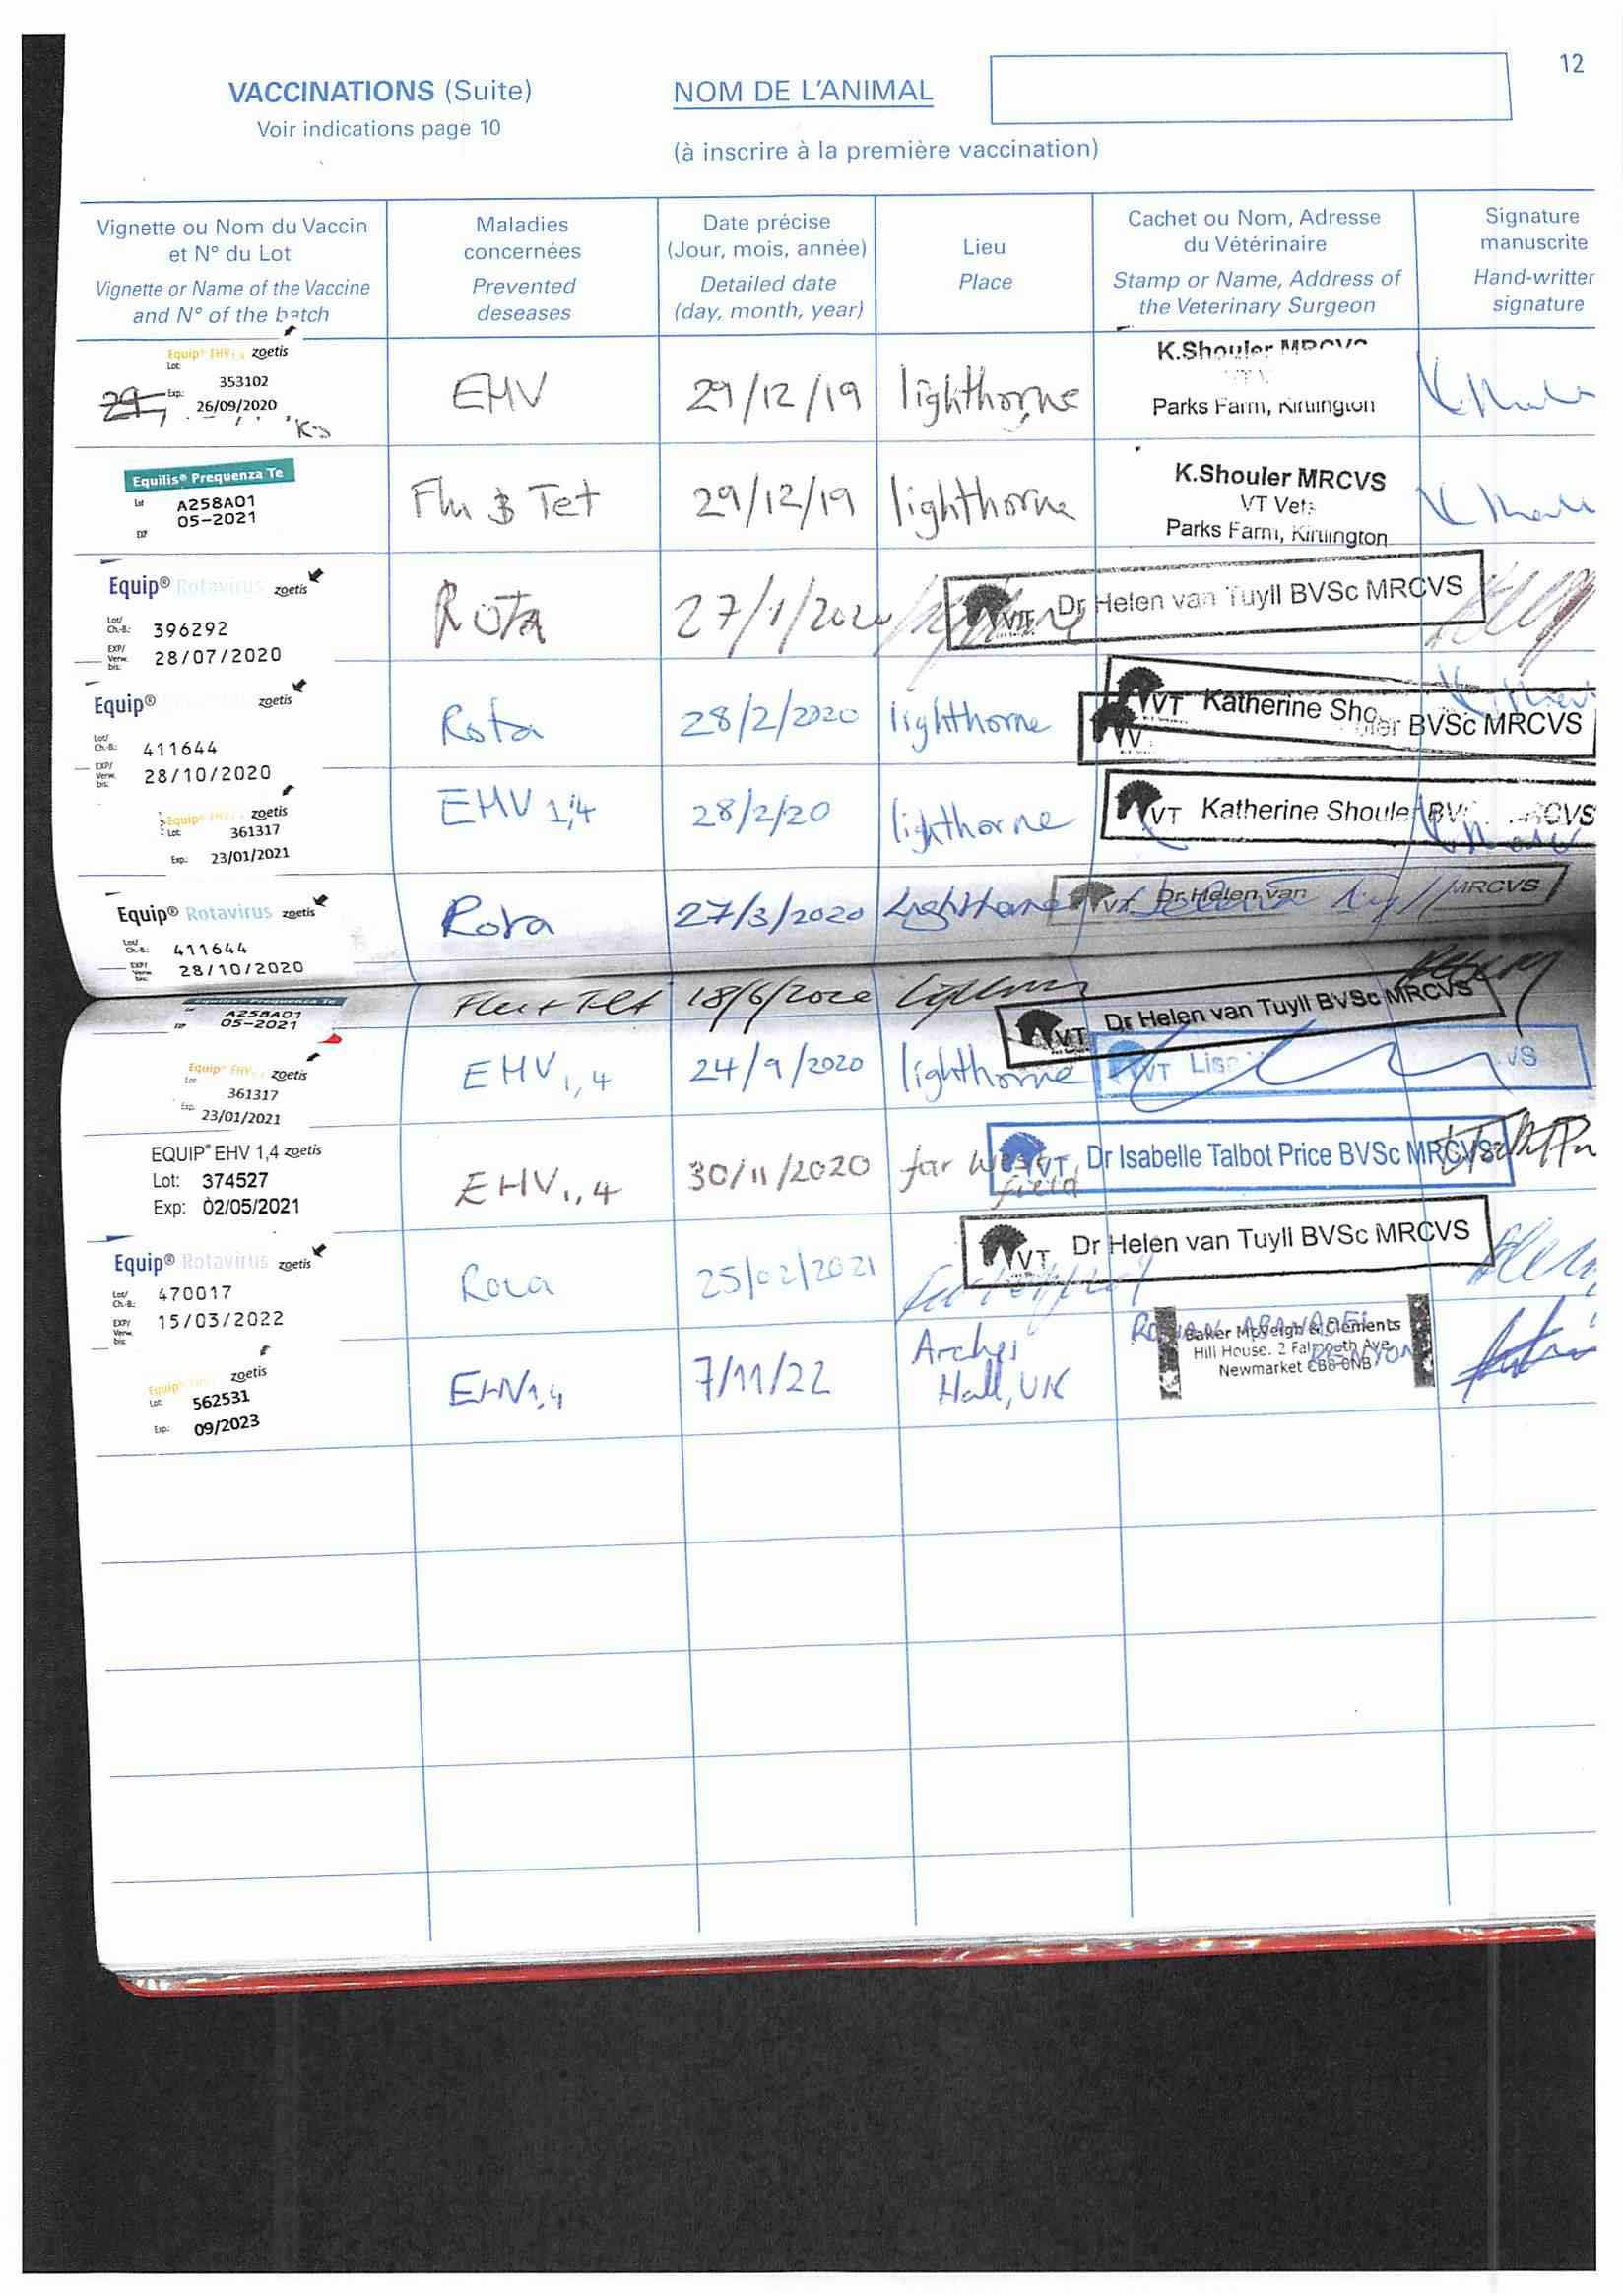 12
VACCINATIONS (Suite)
Voir indications page 10
NOM DE L'ANIMAL
(à inscrire à la première vaccination)
Vignette ou Nom du Vaccin
et N° du Lot
Vignette or Name of the Vaccine
and N° of the batch
Maladies
concernées
Prevented
deseases
Date précise
(Jour, mois, année)
Detailed date
(day, month, year)
Lieu
Place
Cachet ou Nom, Adresse
du Vétérinaire
Stamp or Name, Address of
the Veterinary Surgeon
Signature
manuscrite
Hand-writter
signature
Equip® EHV 1,4 zoetis
Lot: 353102
Exp.: 26/09/2020
KS
EHV
29/12/19
lighthorne
K.Shouler MRCVS
Parks Farm, Kirtlington
Equilis® Prequenza Te
Lot A258A01
EXP 05-2021
Flu & Tet
29/12/19
lighthorne
K.Shouler MRCVS
VT Vets
Parks Farm, Kirtlington
Equip® Rotavirus zoetis
Lot/ Ch.-B.: 396292
EXP/ Verw. bis: 28/07/2020
Rota
27/1/2020
VT Dr Helen van Tuyll BVSc MRCVS
Equip® zoetis
Lot/ Ch.-B.: 411644
EXP/ Verw. bis: 28/10/2020
Rota
28/2/2020
lighthorne
VT Katherine Sho
VT uler BVSc MRCVS
Equip® zoetis
Lot: 361317
Exp.: 23/01/2021
EHV 1,4
28/2/20
lighthorne
VT Katherine Shoule BV RCVS
Equip® Rotavirus zoetis
Lot/ Ch.-B.: 411644
EXP/ Verw. bis: 28/10/2020
Rota
27/3/2020
Lighthorne
VT Dr Helen van MRCVS
Equilis® Prequenza Te
A258A01
EXP 05-2021
Flu + Tet
18/6/2020
VT Dr Helen van Tuyll BVSc MRCVS
Equip® EHV zoetis
Lot 361317
Exp. 23/01/2021
EHV 1,4
24/9/2020
lighthorne
VT Lisa VS
EQUIP® EHV 1,4 zoetis
Lot: 374527
Exp: 02/05/2021
EHV 1,4
30/11/2020
far West
field
VT Dr Isabelle Talbot Price BVSc MRCVS
Equip® Rotavirus zoetis
Lot/ Ch.-B.: 470017
EXP/ Verw. bis: 15/03/2022
Rota
25/02/2021
VT Dr Helen van Tuyll BVSc MRCVS
Equip® zoetis
Lot: 562531
Exp.: 09/2023
EHV1,4
7/11/22
Archer
Hall, UK
Baker McVeigh & Clements
Hill House. 2 Falmouth Ave.
Newmarket CB8 0NB
KENYON